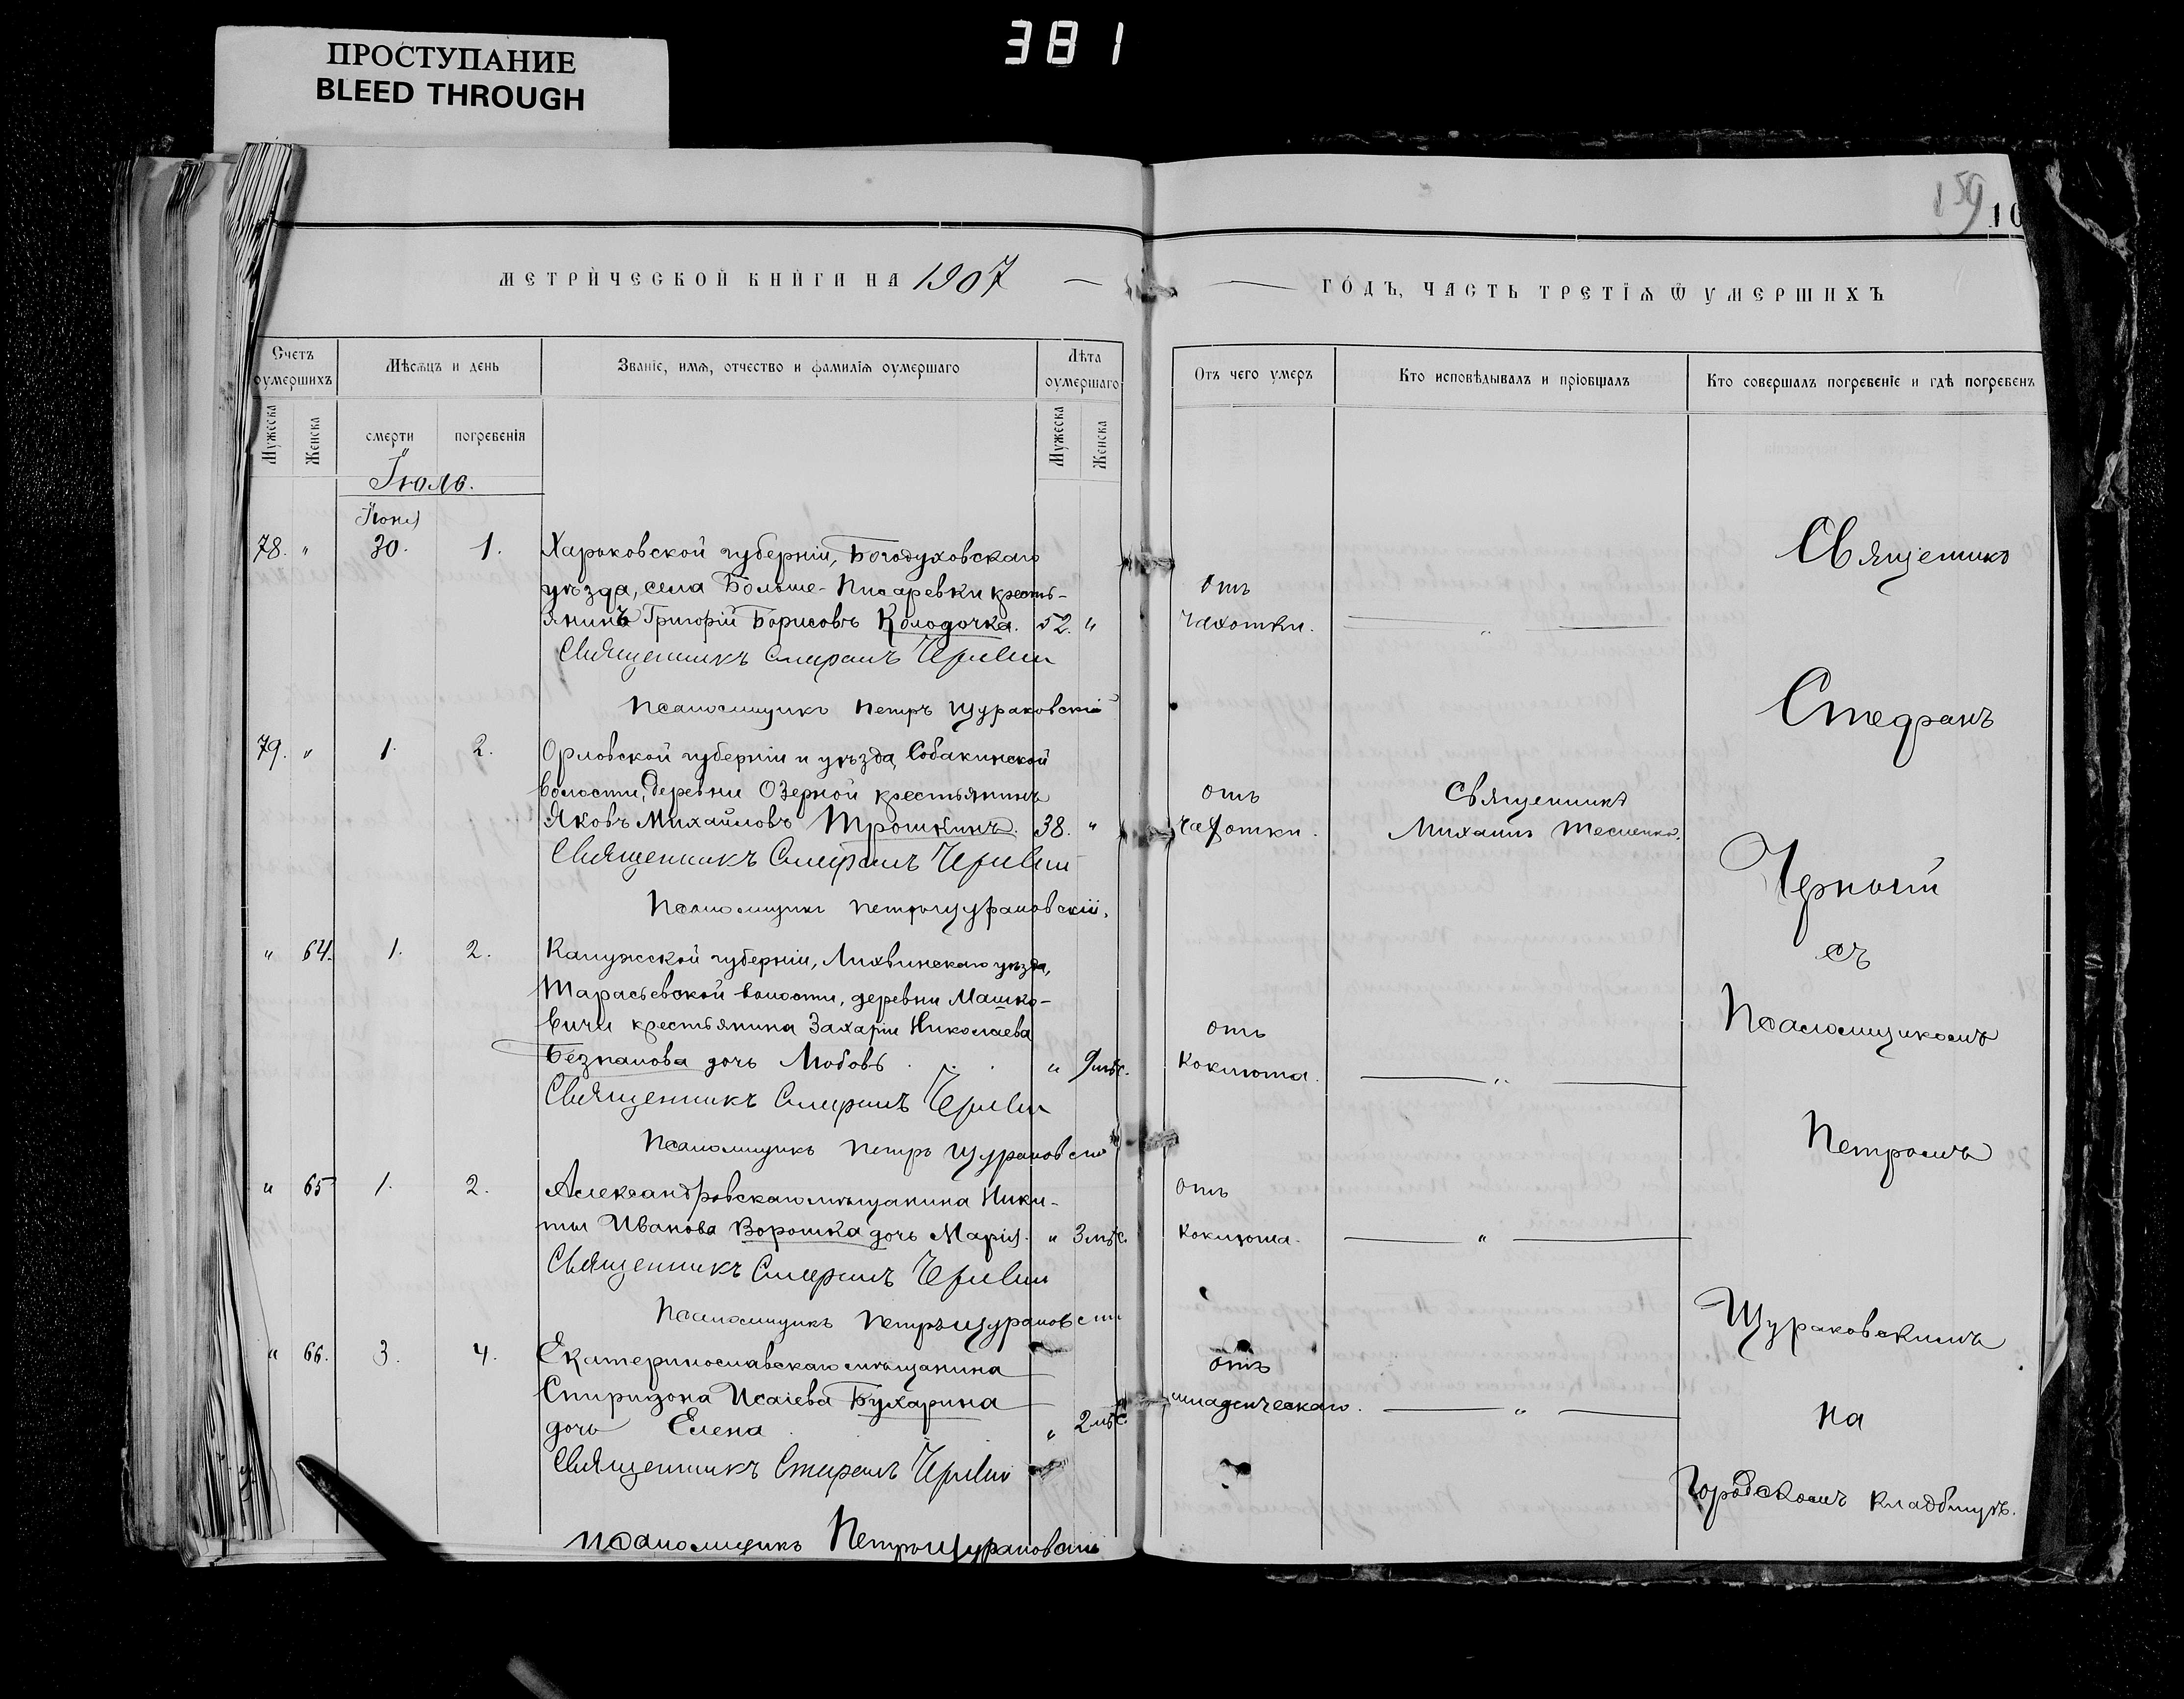 381
ПРОСТУПАНИЕ
BLEED THROUGH
159
10
МЕТРИЧЕСКОЙ КНИГИ НА 1907
ГОДЪ, ЧАСТЬ ТРЕТІѦ Ѿ УМЕРШИХЪ
Счетъ оумершихъ
Мѣсѧцъ и день
Званіе, имѧ, отчество и фамиліѧ оумершаго
Лѣта оумершаго
Отъ чего умеръ
Кто исповѣдывалъ и пріобщалъ
Кто совершалъ погребеніе и гдѣ погребенъ
Мужеска
Женска
смерти
погребенія
Мужеска
Женска
Іюль.
Іюня
78. " 30. 1. Харьковской губерніи, Богодуховскаго
уѣзда, села Больше-Писаревки кресть-
янинъ Григорій Борисовъ Колодочка. 52. "
отъ
чахотки. "
Священникъ Стефанъ Черный
Псаломщикъ Петръ Щураковскій
79. " 1. 2. Орловской губерніи и уѣзда, Собакинской
волости, деревни Озерной крестьянинъ
Яковъ Михайловъ Трошкинъ. 38. "
отъ
чахотки.
Священникъ
Михаилъ Тесленко.
Священникъ Стефанъ Черный
Псаломщикъ Петръ Щураковскій.
" 64. 1. 2. Калужской губерніи, Лихвинскаго уѣзда,
Тарасьевской волости, деревни Машко-
вичи крестьянина Захаріи Николаева
Безпалова дочь Любовь . . . " 9 мѣс.
отъ
коклюша. "
Священникъ Стефанъ Черный
Псаломщикъ Петръ Щураковскій
" 65 1. 2. Александровскаго мѣщанина Ники-
ты Иванова Ворошка дочь Марія. " 3 мѣс.
отъ
коклюша. "
Священникъ Стефанъ Черный
Псаломщикъ Петръ Щураковскій
" 66. 3. 4. Екатеринославскаго мѣщанина
Спиридона Исаіева Бухарина
дочь Елена . " 2 мѣс.
отъ
младенческаго. "
Священникъ Стефанъ Черный
Псаломщикъ Петръ Щураковскій
Священникъ
Стефанъ
Черный
съ
Псаломщикомъ
Петромъ
Щураковскимъ
на
Городскомъ кладбищѣ.